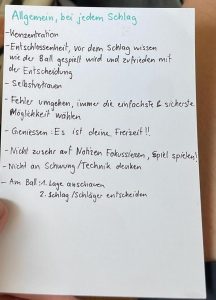 Allgemein, bei jedem Schlag
- Konzentration
- Entschlossenheit, vor dem Schlag wissen
wie der Ball gespielt wird und zufrieden mit
der Entscheidung
- Selbstvertrauen
- Fehler umgehen, immer die einfachste & sicherste
Möglichkeit wählen
- Geniessen: Es ist deine Freizeit!!
- Nicht zu sehr auf Notizen Fokussieren, Spiel spielen!
- Nicht an Schwung/Technik denken
- Am Ball: 1. Lage anschauen
2. Schlag/Schläger entscheiden